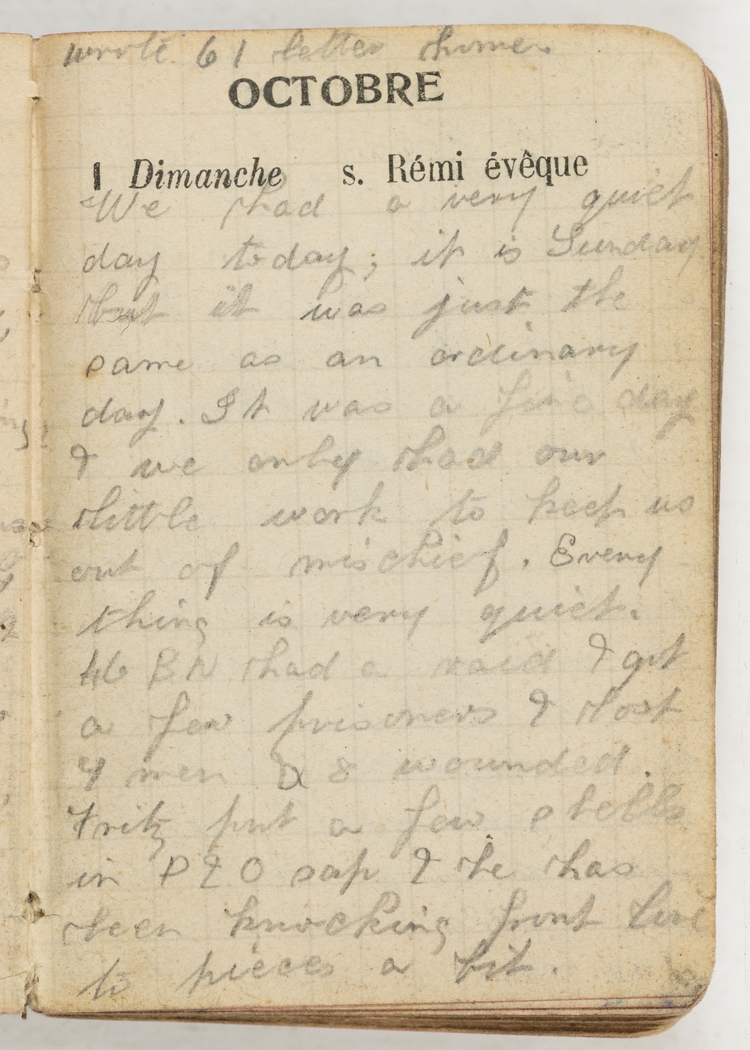 wrote 61 letter home.
OCTOBRE
1 Dimanche s. Rémi évêque
We had a very quiet
day today; it is Sunday
but it was just the
same as an ordinary
day. It was a fine day
& we only had our
little work to keep us
out of mischief. Every
thing is very quiet.
46 BN had a raid & got
a few prisoners & lost
4 men & 8 wounded.
Fritz put a few shells
in P & O sap & he has
been knocking front line
to pieces a bit.